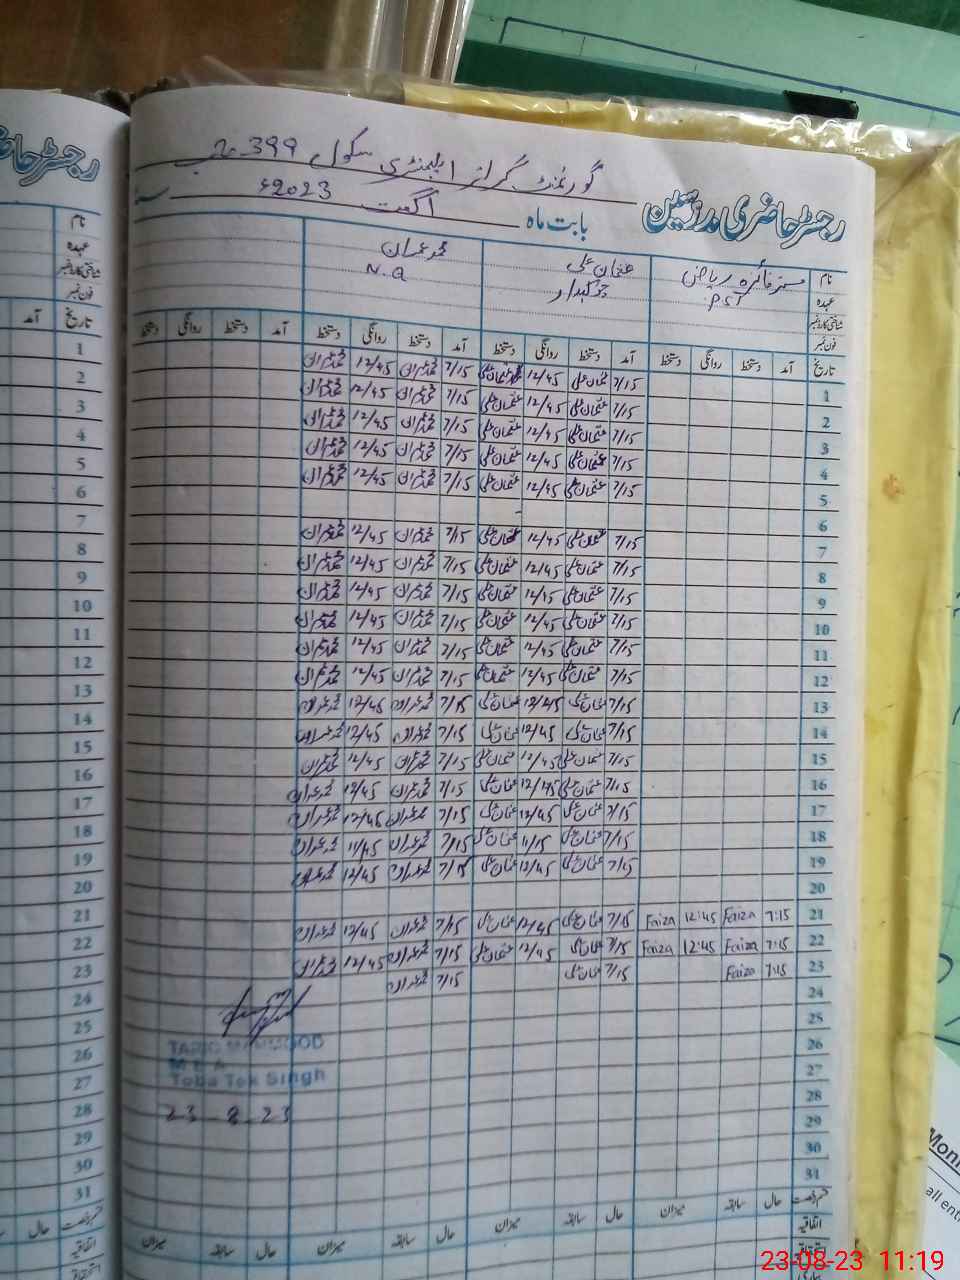 رجسٹر حاضری مدرسین گورنمنٹ گرلز ایلیمنٹری سکول 399
بابت ماہ اگست 2023ء
نام مسز فائزہ ریاض عثمان علی محمد عمران
عہدہ PST چوکیدار N.Q
شناختی کارڈ نمبر
فون نمبر
تاریخ آمد دستخط روانگی دستخط آمد دستخط روانگی دستخط آمد دستخط روانگی دستخط آمد دستخط روانگی دستخط
1 7/15 عثمان علی 12/45 عثمان علی 7/15 محمد عمران 12/45 محمد عمران
2 7/15 عثمان علی 12/45 عثمان علی 7/15 محمد عمران 12/45 محمد عمران
3 7/15 عثمان علی 12/45 عثمان علی 7/15 محمد عمران 12/45 محمد عمران
4 7/15 عثمان علی 12/45 عثمان علی 7/15 محمد عمران 12/45 محمد عمران
5 7/15 عثمان علی 12/45 عثمان علی 7/15 محمد عمران 12/45 محمد عمران
6
7 7/15 عثمان علی 12/45 عثمان علی 7/15 محمد عمران 12/45 محمد عمران
8 7/15 عثمان علی 12/45 عثمان علی 7/15 محمد عمران 12/45 محمد عمران
9 7/15 عثمان علی 12/45 عثمان علی 7/15 محمد عمران 12/45 محمد عمران
10 7/15 عثمان علی 12/45 عثمان علی 7/15 محمد عمران 12/45 محمد عمران
11 7/15 عثمان علی 12/45 عثمان علی 7/15 محمد عمران 12/45 محمد عمران
12 7/15 عثمان علی 12/45 عثمان علی 7/15 محمد عمران 12/45 محمد عمران
13 7/15 عثمان علی 12/45 عثمان علی 7/15 محمد عمران 12/45 محمد عمران
14 7/15 عثمان علی 12/45 عثمان علی 7/15 محمد عمران 12/45 محمد عمران
15 7/15 عثمان علی 12/45 عثمان علی 7/15 محمد عمران 12/45 محمد عمران
16 7/15 عثمان علی 12/45 عثمان علی 7/15 محمد عمران 12/45 محمد عمران
17 7/15 عثمان علی 12/45 عثمان علی 7/15 محمد عمران 12/45 محمد عمران
18 7/15 عثمان علی 11/15 عثمان علی 7/15 محمد عمران 11/45 محمد عمران
19 7/15 عثمان علی 12/45 عثمان علی 7/15 محمد عمران 12/45 محمد عمران
20
21 7:15 Faiza 12:45 Faiza 7/15 عثمان علی 12/45 عثمان علی 7/15 محمد عمران 12/45 محمد عمران
22 7:15 Faiza 12:45 Faiza 7/15 عثمان علی 12/45 عثمان علی 7/15 محمد عمران 12/45 محمد عمران
23 7:15 Faiza 7/15 عثمان علی 7/15 محمد عمران
24
25
26
27
28
29
30
31
TARIQ MAHMOOD
M E A
Toba Tek Singh
23-8-23
حال سابقہ میزان حال سابقہ میزان حال سابقہ میزان حال سابقہ میزان
اتفاقیہ
استحقاقیہ
نام
عہدہ
شناختی کارڈ نمبر
فون نمبر
تاریخ آمد
1
2
3
4
5
6
7
8
9
10
11
12
13
14
15
16
17
18
19
20
21
22
23
24
25
26
27
28
29
30
31
قسم رخصت حال
اتفاقیہ
استحقاقیہ
all ent
23-08-23 11:19